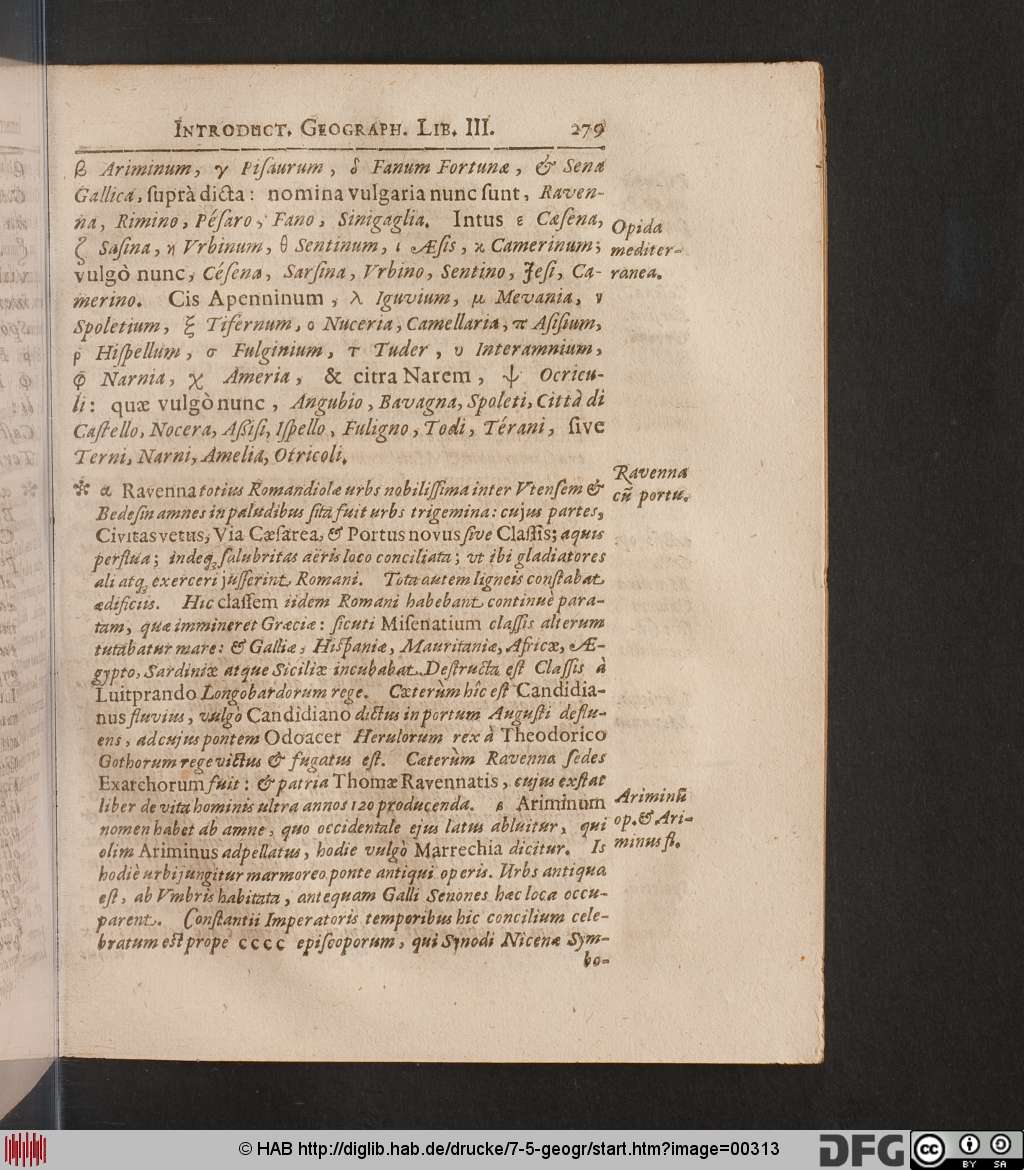 INTRODUCT. GEOGRAPH. LIB. III. 279
β Ariminum, γ Piſaurum, δ Fanum Fortunæ, & Sena
Gallica, ſuprà dicta: nomina vulgaria nunc ſunt, Raven-
na, Rimino, Péſaro, Fano, Sinigaglia. Intus ε Cæſena,
ζ Saſina, η Vrbinum, θ Sentinum, ι Æſis, ϰ Camerinum;
vulgò nunc, Céſena, Sarſina, Vrbino, Sentino, Jeſi, Ca-
merino. Cis Apenninum, λ Iguvium, μ Mevania, ν
Spoletium, ξ Tifernum, ο Nuceria, Camellaria, π Aſiſium,
ρ Hiſpellum, σ Fulginium, τ Tuder, υ Interamnium,
φ Narnia, χ Ameria, & citra Narem, ψ Ocricu-
li: quæ vulgò nunc, Angubio, Bavagna, Spoleti, Città di
Caſtello, Nocera, Aßiſi, Iſpello, Fuligno, Todi, Térani, ſive
Terni, Narni, Amelia, Otricoli.
Opida
mediter-
ranea.
* α Ravenna totius Romandiolæ urbs nobiliſſima inter Vtenſem &
Bedeſin amnes in paludibus ſita fuit urbs trigemina: cujus partes,
Civitas vetus, Via Cæſarea, & Portus novus ſive Claſſis; aquis
perflua; indeq; ſalubritas aëris loco conciliata; ut ibi gladiatores
ali atq; exerceri juſſerint Romani. Tota autem ligneis conſtabat
ædificiis. Hic claſſem iidem Romani habebant continuè para-
tam, quæ immineret Græciæ: ſicuti Miſenatium claſſis alterum
tutabatur mare: & Galliæ, Hiſpaniæ, Mauritaniæ, Africæ, Æ-
gypto, Sardiniæ atque Siciliæ incubabat. Deſtructa eſt Claſſis à
Luitprando Longobardorum rege. Cæterùm hîc eſt Candidia-
nus fluvius, vulgò Candidiano dictus in portum Auguſti deflu-
ens, ad cujus pontem Odoacer Herulorum rex à Theodorico
Gothorum rege victus & fugatus eſt. Cæterùm Ravenna ſedes
Exarchorum fuit: & patria Thomæ Ravennatis, cujus exſtat
liber de vita hominis ultra annos 120 producenda. β Ariminum
nomen habet ab amne, quo occidentale ejus latus abluitur, qui
olim Ariminus adpellatus, hodie vulgò Marrechia dicitur. Is
hodiè urbi jungitur marmoreo ponte antiqui operis. Urbs antiqua
eſt, ab Vmbris habitata, antequam Galli Senones hæc loca occu-
parent. Conſtantii Imperatoris temporibus hic concilium cele-
bratum eſt prope cccc epiſcoporum, qui Synodi Nicenæ Sym-
bo-
Ravenna
cũ portu.
Ariminũ
op. & Ari-
minus fl.
© HAB http://diglib.hab.de/drucke/7-5-geogr/start.htm?image=00313
DFG
cc BY SA